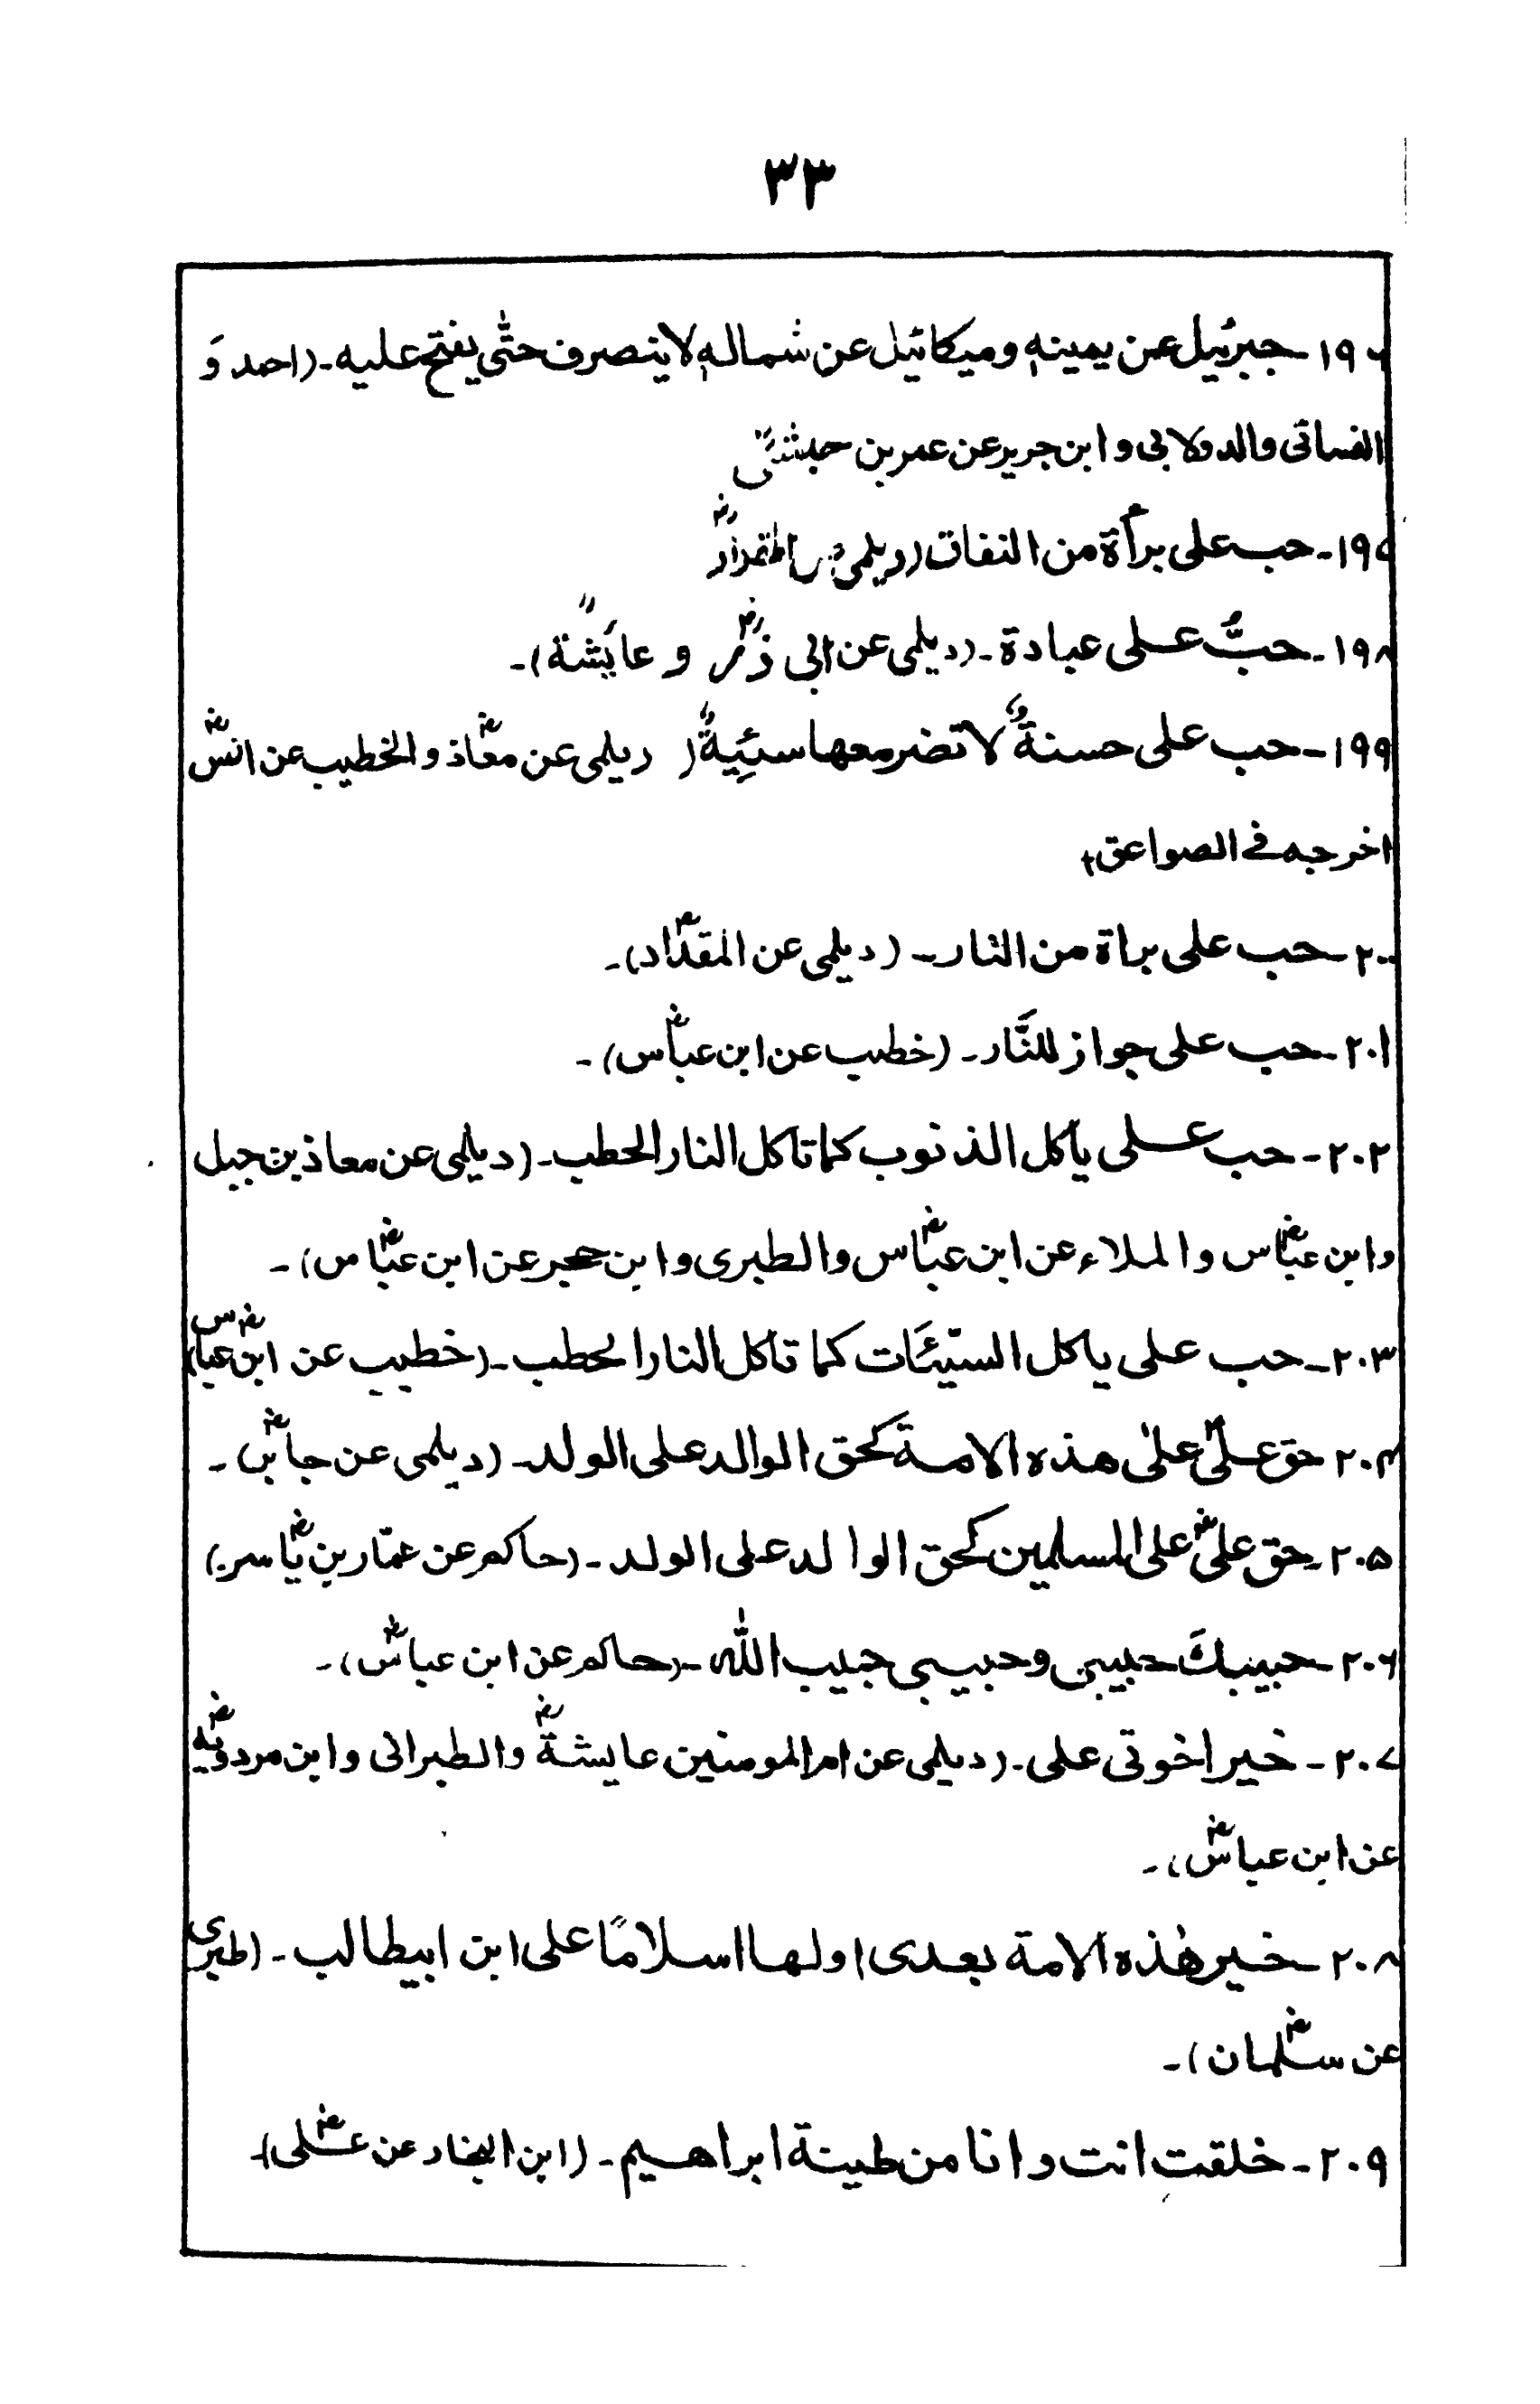 ۳۳
۱۹۶۔ جبرئیل عن یمینهٖ ومیکائیل عن شمالهٖ لاینصرف حتّٰی یفتح علیه۔ (احمد وَ
النسائی والدولابی وابن جریر عن عمر بن حبشیؓ
۱۹۷۔ حب علی برأة من النفاق (دیلمی عن المقدادؓ
۱۹۸۔ حبُّ علی عبادة۔ (دیلمی عن ابی ذرؓ و عایشة)۔
۱۹۹۔ حب علی حسنةٌ لا تضر معها سیئیةٌ (دیلمی عن معاذؓ والخطیب عن انسؓ
اخرجه فی الصواعق
۲۰۰۔ حب علی براة من النار۔ (دیلمی عن المقدادؓ)۔
۲۰۱۔ حب علی جواز للنَّار۔ (خطیب عن ابن عباسؓ)۔
۲۰۲۔ حب علی یأکل الذنوب کما تاکل النار الحطب۔ (دیلمی عن معاذ بن جبل
وابن عباسؓ والملاء عن ابن عباسؓ والطبری وابن حجر عن ابن عباسؓ)۔
۲۰۳۔ حب علی یاکل السیّئَات کما تاکل النار الحطب۔ (خطیب عن ابن عباسؓ)
۲۰۴۔ حق علیؓ علیٰ هذه الامة کحق الوالد علی الولد۔ (دیلمی عن جابرؓ)۔
۲۰۵۔ حق علیؓ علی المسلمین کحق الوالد علی الولد۔ (حاکم عن عمّار بن یاسرؓ)
۲۰۶۔ حبیبكَ حبیبی وحبیبی حبیب اللّٰه۔ (حاکم عن ابن عباسؓ)۔
۲۰۷۔ خیر اخوتی علی۔ (دیلمی عن ام المومنین عایشةؓ والطبرانی وابن مردویه
عن ابن عباسؓ)۔
۲۰۸۔ خیر هٰذه الامة بعدی اولها اسلامًا علی ابن ابیطالب۔ (طبری
عن سلمانؓ)۔
۲۰۹۔ خلقت انت وانا من طینة ابراهیم۔ (ابن النجار عن علیؓ)۔